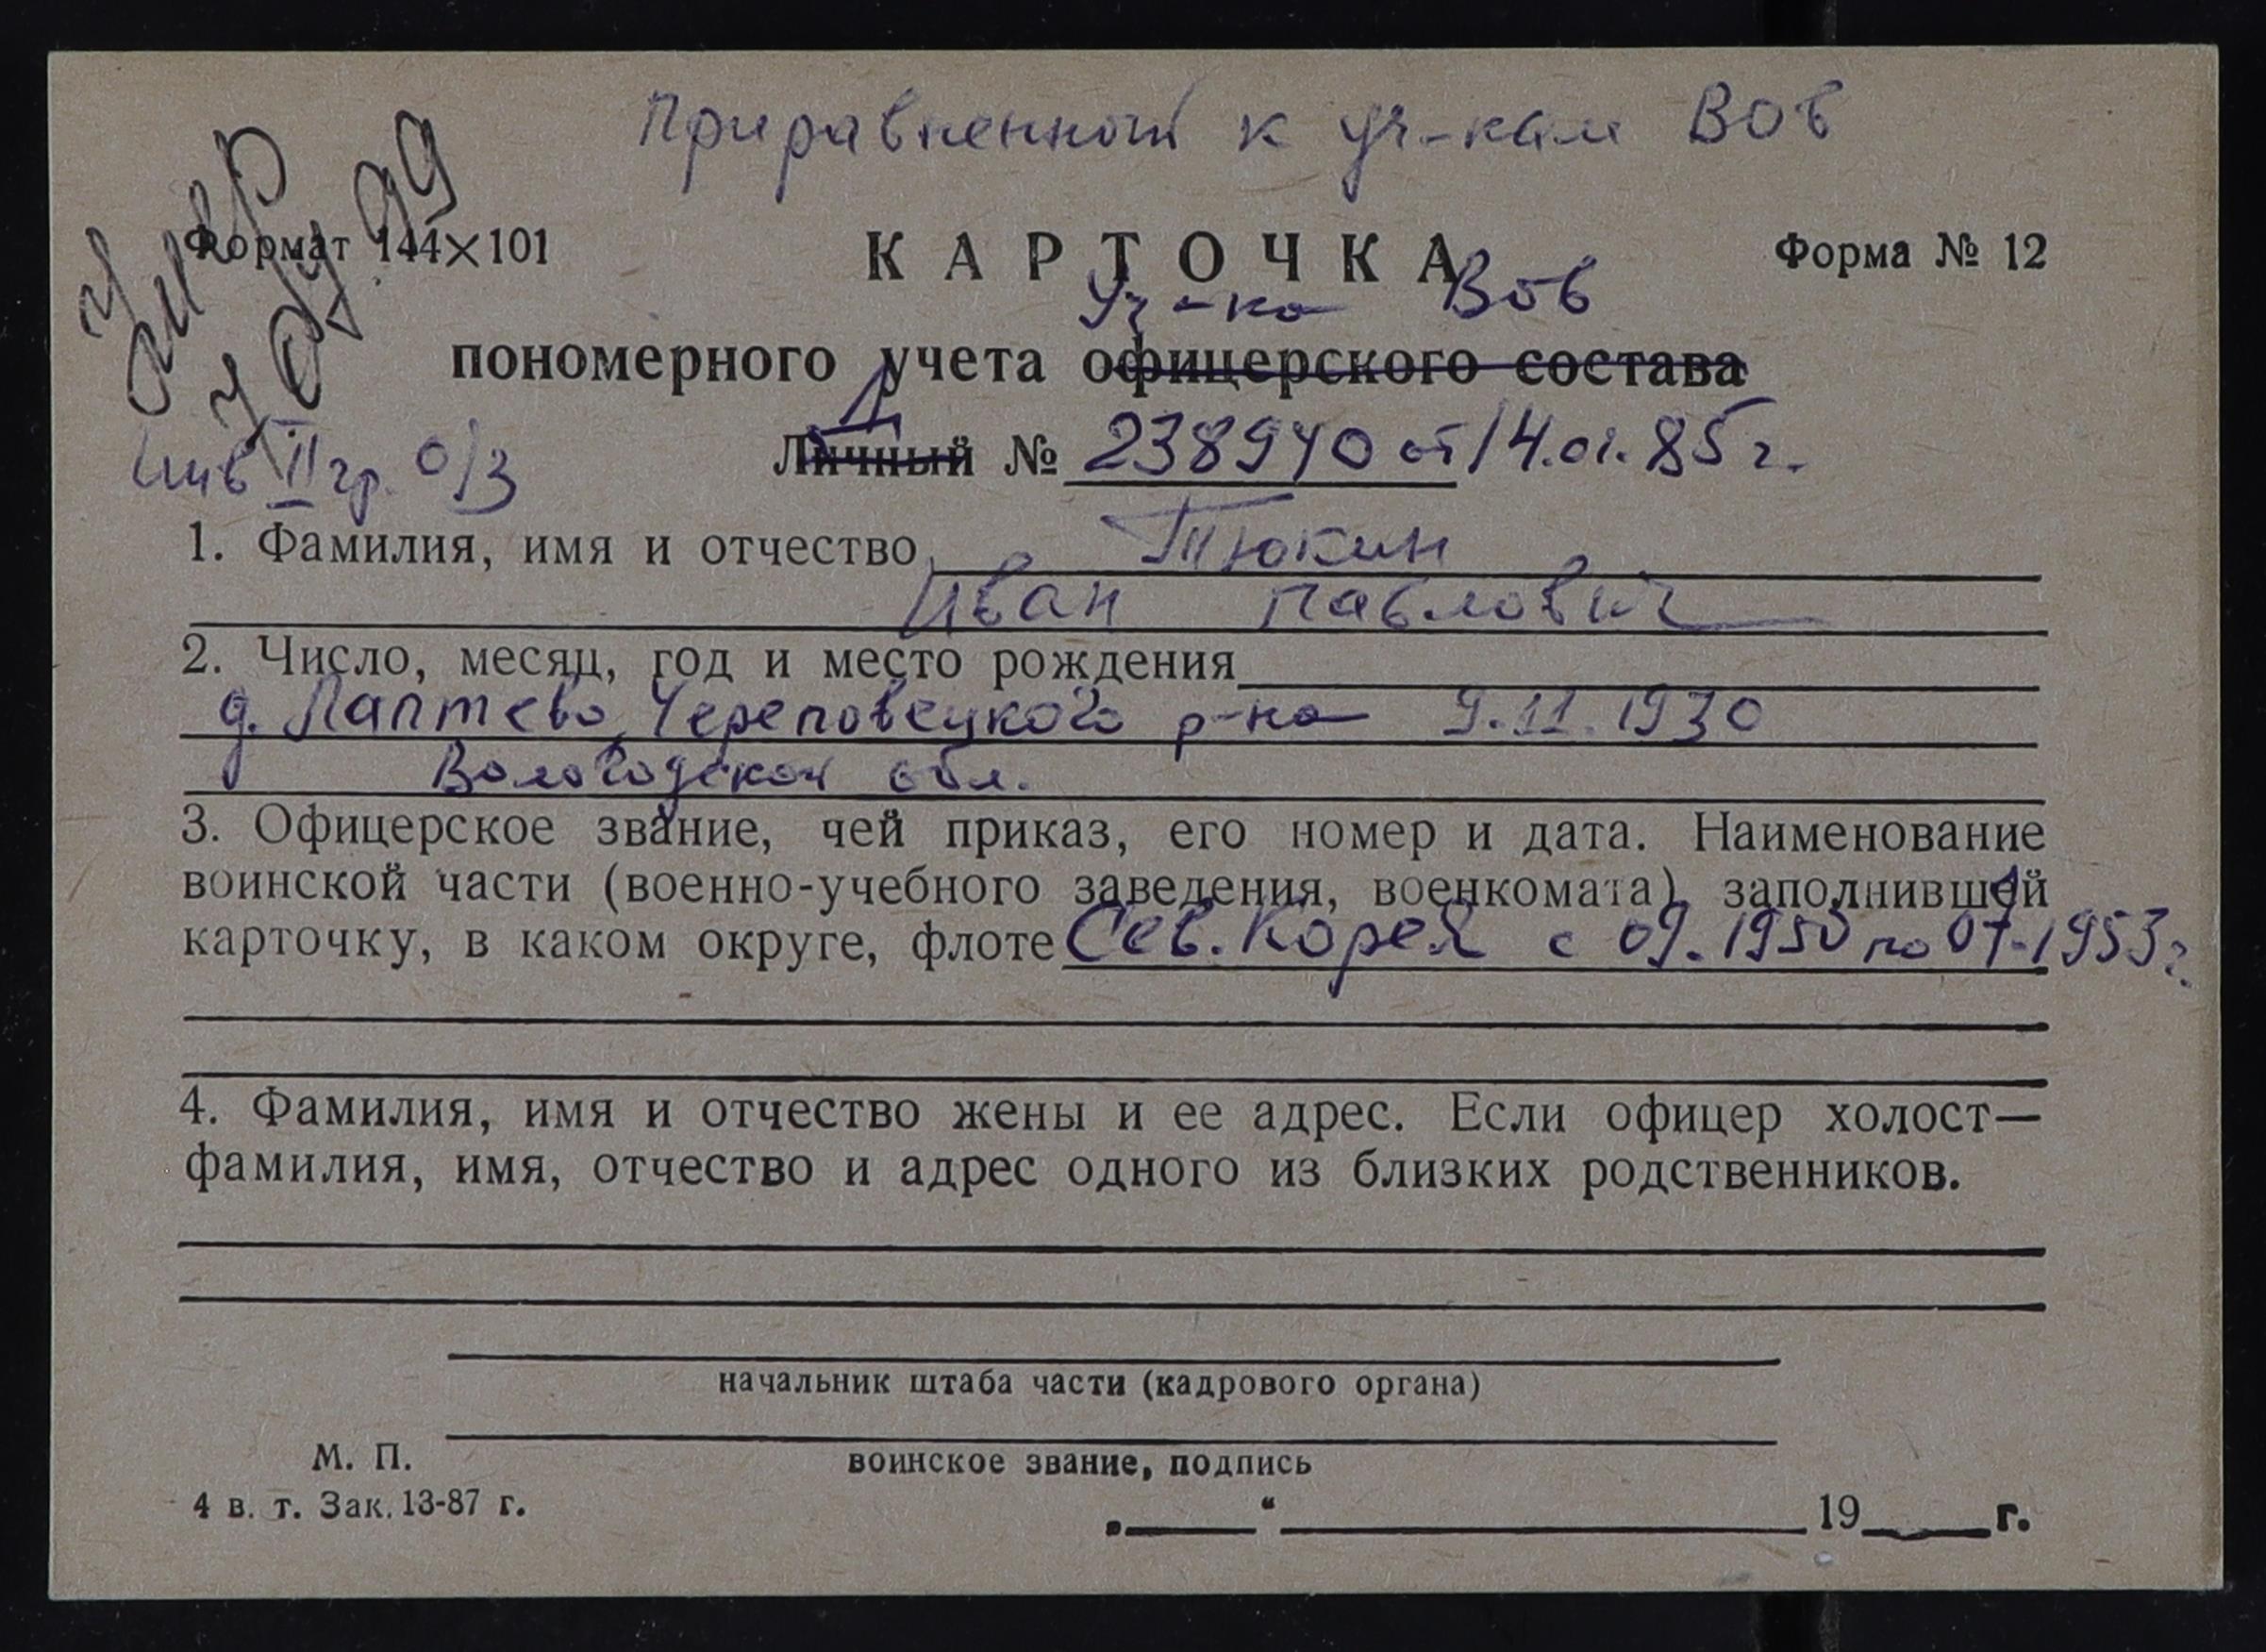 Приравненный к уч-кам ВОв
умер
Формат 144×101
КАРТОЧКА
Форма № 12
Уч-ка ВОв
пономерного учета офицерского состава
Инв II гр. о/з
Личный № Д 238940 от 14.01.85 г.
1. Фамилия, имя и отчество Тюкин
Иван Павлович
2. Число, месяц, год и место рождения
д. Лаптево, Череповецкого р-на 9.11.1930
Вологодской обл.
3. Офицерское звание, чей приказ, его номер и дата. Наименование
воинской части (военно-учебного заведения, военкомата), заполнившей
карточку, в каком округе, флоте Сев. Корея с 09.1950 по 07.1953 г.
4. Фамилия, имя и отчество жены и ее адрес. Если офицер холост—
фамилия, имя, отчество и адрес одного из близких родственников.
начальник штаба части (кадрового органа)
М. П.
воинское звание, подпись
4 в. т. Зак. 13-87 г.
„ “ 19 г.